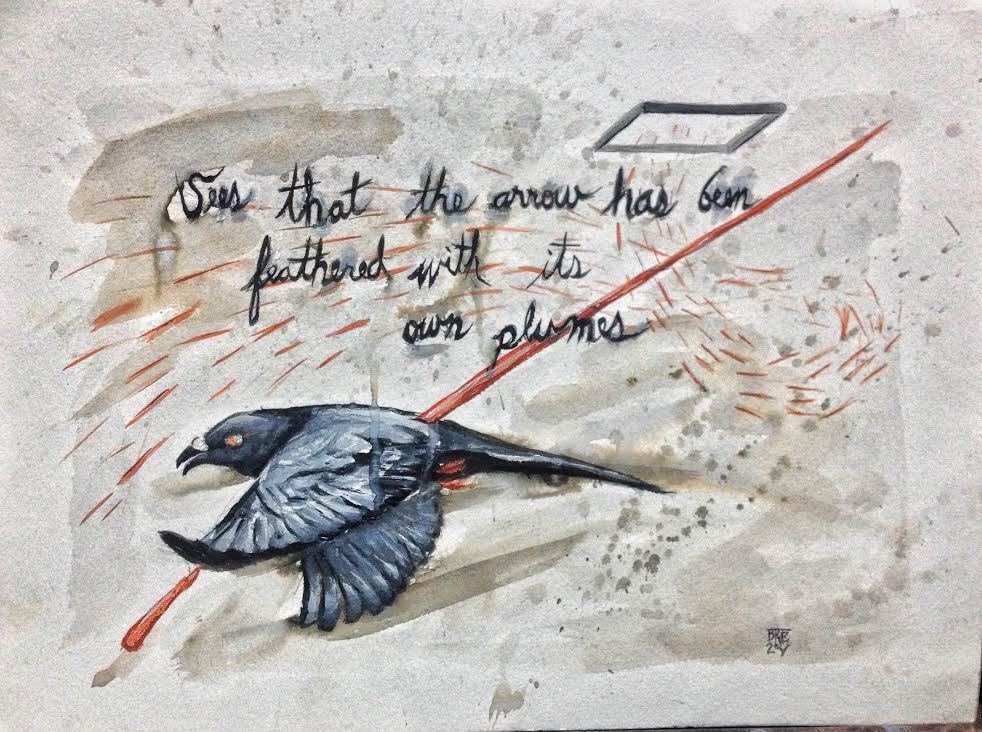 Sees that the arrow has been
feathered with its
own plumes